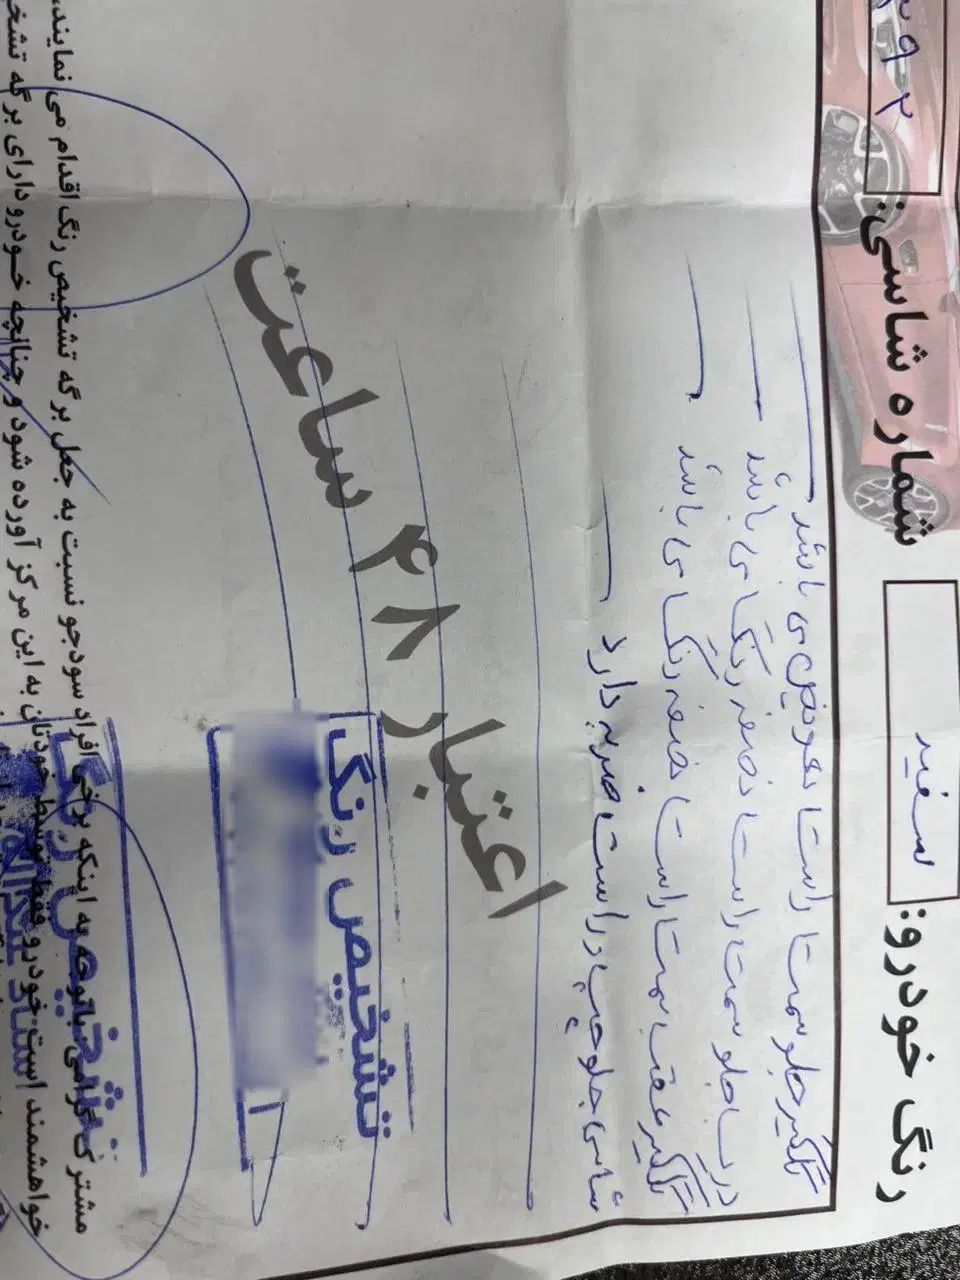 رنگ خودرو: سفید شماره شاسی: ۲۹۲
گلگیر جلو سمت راست تعویض می باشد
درب جلو سمت راست نصفه رنگ می باشد
گلگیر عقب سمت راست نصفه رنگ می باشد
شاسی جلو چپ و راست ضربه دارد
اعتبار ۴۸ ساعت
تشخیص رنگ
تشخیص رنگ
مشترک گرامی با توجه به اینکه برخی افراد سودجو نسبت به جعل برگه تشخیص رنگ اقدام می نمایند،
خواهشمند است خودرو فقط توسط خودتان به این مرکز آورده شود و چنانچه خودرو دارای برگه